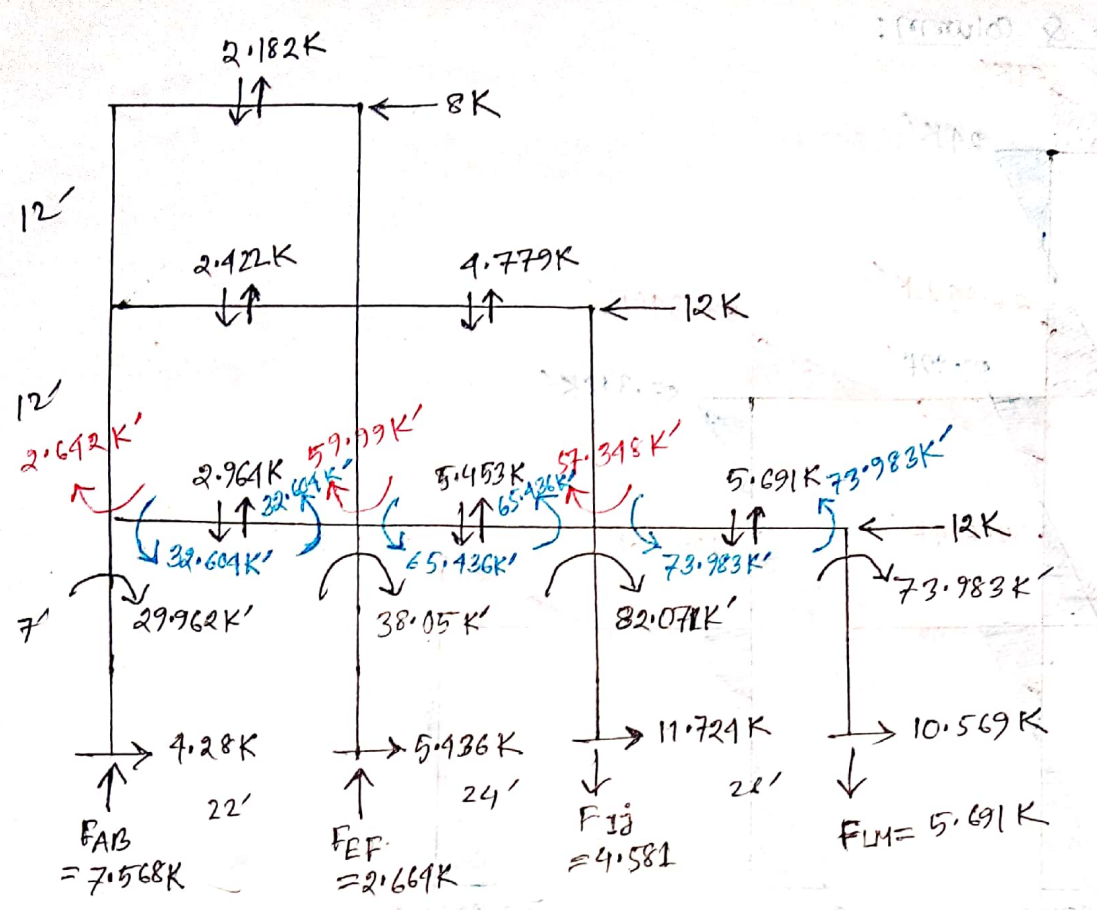 2.182K
8K
12'
2.422K
4.779K
12K
12'
2.642K'
2.964K
32.604K'
59.99K'
5.453K
65.436K'
57.348K'
5.691K
73.983K'
12K
32.604K'
65.436K'
73.983K'
7'
29.962K'
38.05K'
82.071K'
73.983K'
4.28K
5.436K
11.724K
10.569K
22'
24'
FAB
=7.568K
FEF
=2.664K
FIJ
=4.581
FLM= 5.691K